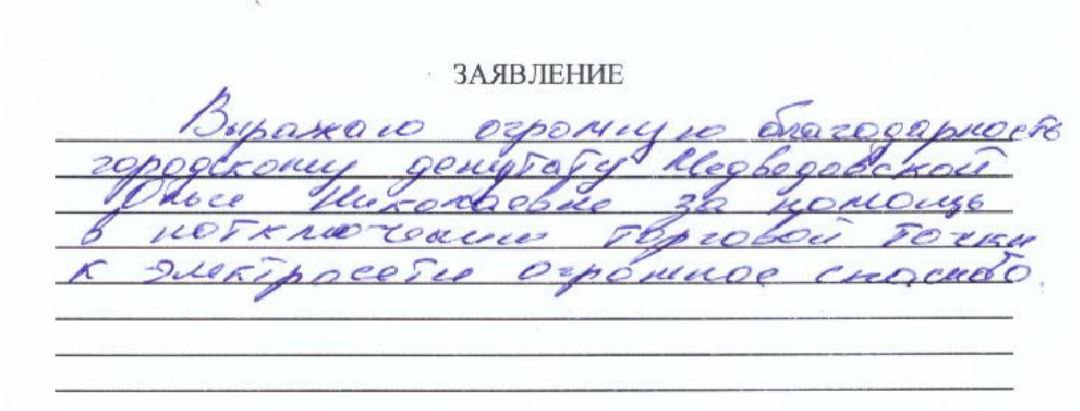 ЗАЯВЛЕНИЕ
Выражаю огромную благодарность
городскому депутату Медведовской
Ольге Николаевне за помощь
в потключении торговой точки
к электросети огромное спасибо.